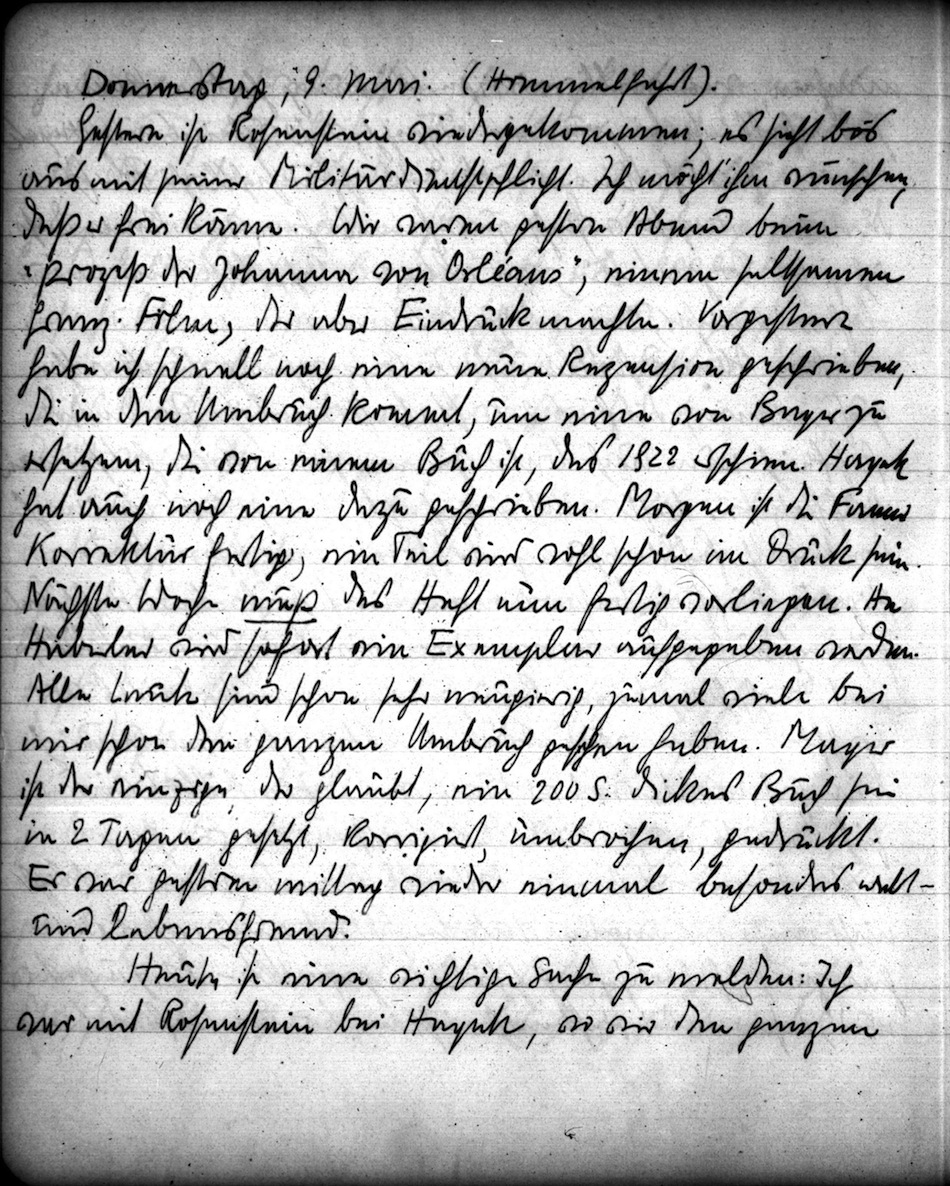 Donnerstag, 9. Mai. (Himmelfahrt).
Gestern ist Rosenstein wiedergekommen; es sieht bös
aus mit seiner Militärdienstpflicht. Ich möcht ihm wünschen,
daß er frei käme. Wir waren gestern Abend beim
"Prozeß der Johanna von Orléans", einem seltsamen
franz. Film, der aber Eindruck machte. Vorgestern
habe ich schnell noch eine neue Rezension geschrieben,
die in den Umbruch kommt, um eine von Bayer zu
ersetzen, die von einem Buch ist, das 1922 erschien. Hayek
hat auch noch eine dazu geschrieben. Morgen ist die
Korrektur fertig, ein Teil wird wohl schon im Druck sein.
Nächste Woche muß das Heft nun fertig vorliegen. An
Haberler wird sofort ein Exemplar aufgegeben werden.
Alle Leute sind schon sehr neugierig, zumal viele bei
mir schon den ganzen Umbruch gesehen haben. Mayer
ist der einzige, der glaubt, ein 200 S. dickes Buch sei
in 2 Tagen gesetzt, korrigiert, umbrochen, gedruckt.
Er war gestern mittag wieder einmal besonders welt-
und lebensfremd.
Heute ist eine wichtige Sache zu melden: Ich
war mit Rosenstein bei Hayek, wo wir den ganzen